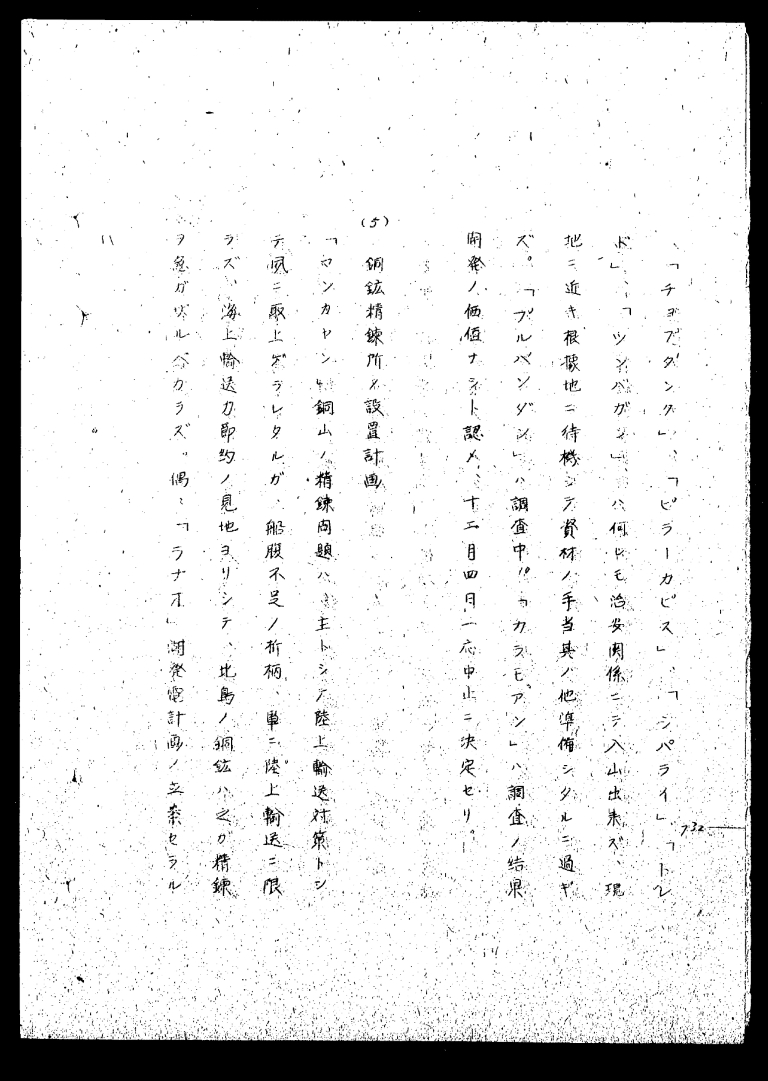 、「チヨブダング」、「ピラーカピス」、「シパライ」「トレ
ド」、「ツンバガン」ハ何レモ治安関係ニテ入山出来ズ、現
地ニ近キ根拠地ニ待機シテ資材ノ手当其ノ他準備シタルニ過ギ
ズ。「ブルバンダン」ハ調査中。「カラモアン」ハ調査ノ結果
開発ノ価値ナシト認メ、十二月四日一応中止ニ決定セリ。
(5) 銅鉱精錬所ノ設置計画
「マンカヤン」銅山ノ精錬問題ハ、主トシテ陸上輸送対策トシ
テ夙ニ取上ゲラレタルガ、船腹不足ノ折柄、単ニ陸上輸送ニ限
ラズ、海上輸送力節約ノ見地ヨリシテ、比島ノ銅鉱ハ之ガ精錬
ヲ急ガザルベカラズ。偶々「ラナオ」湖発電計画ノ立案セラル
732